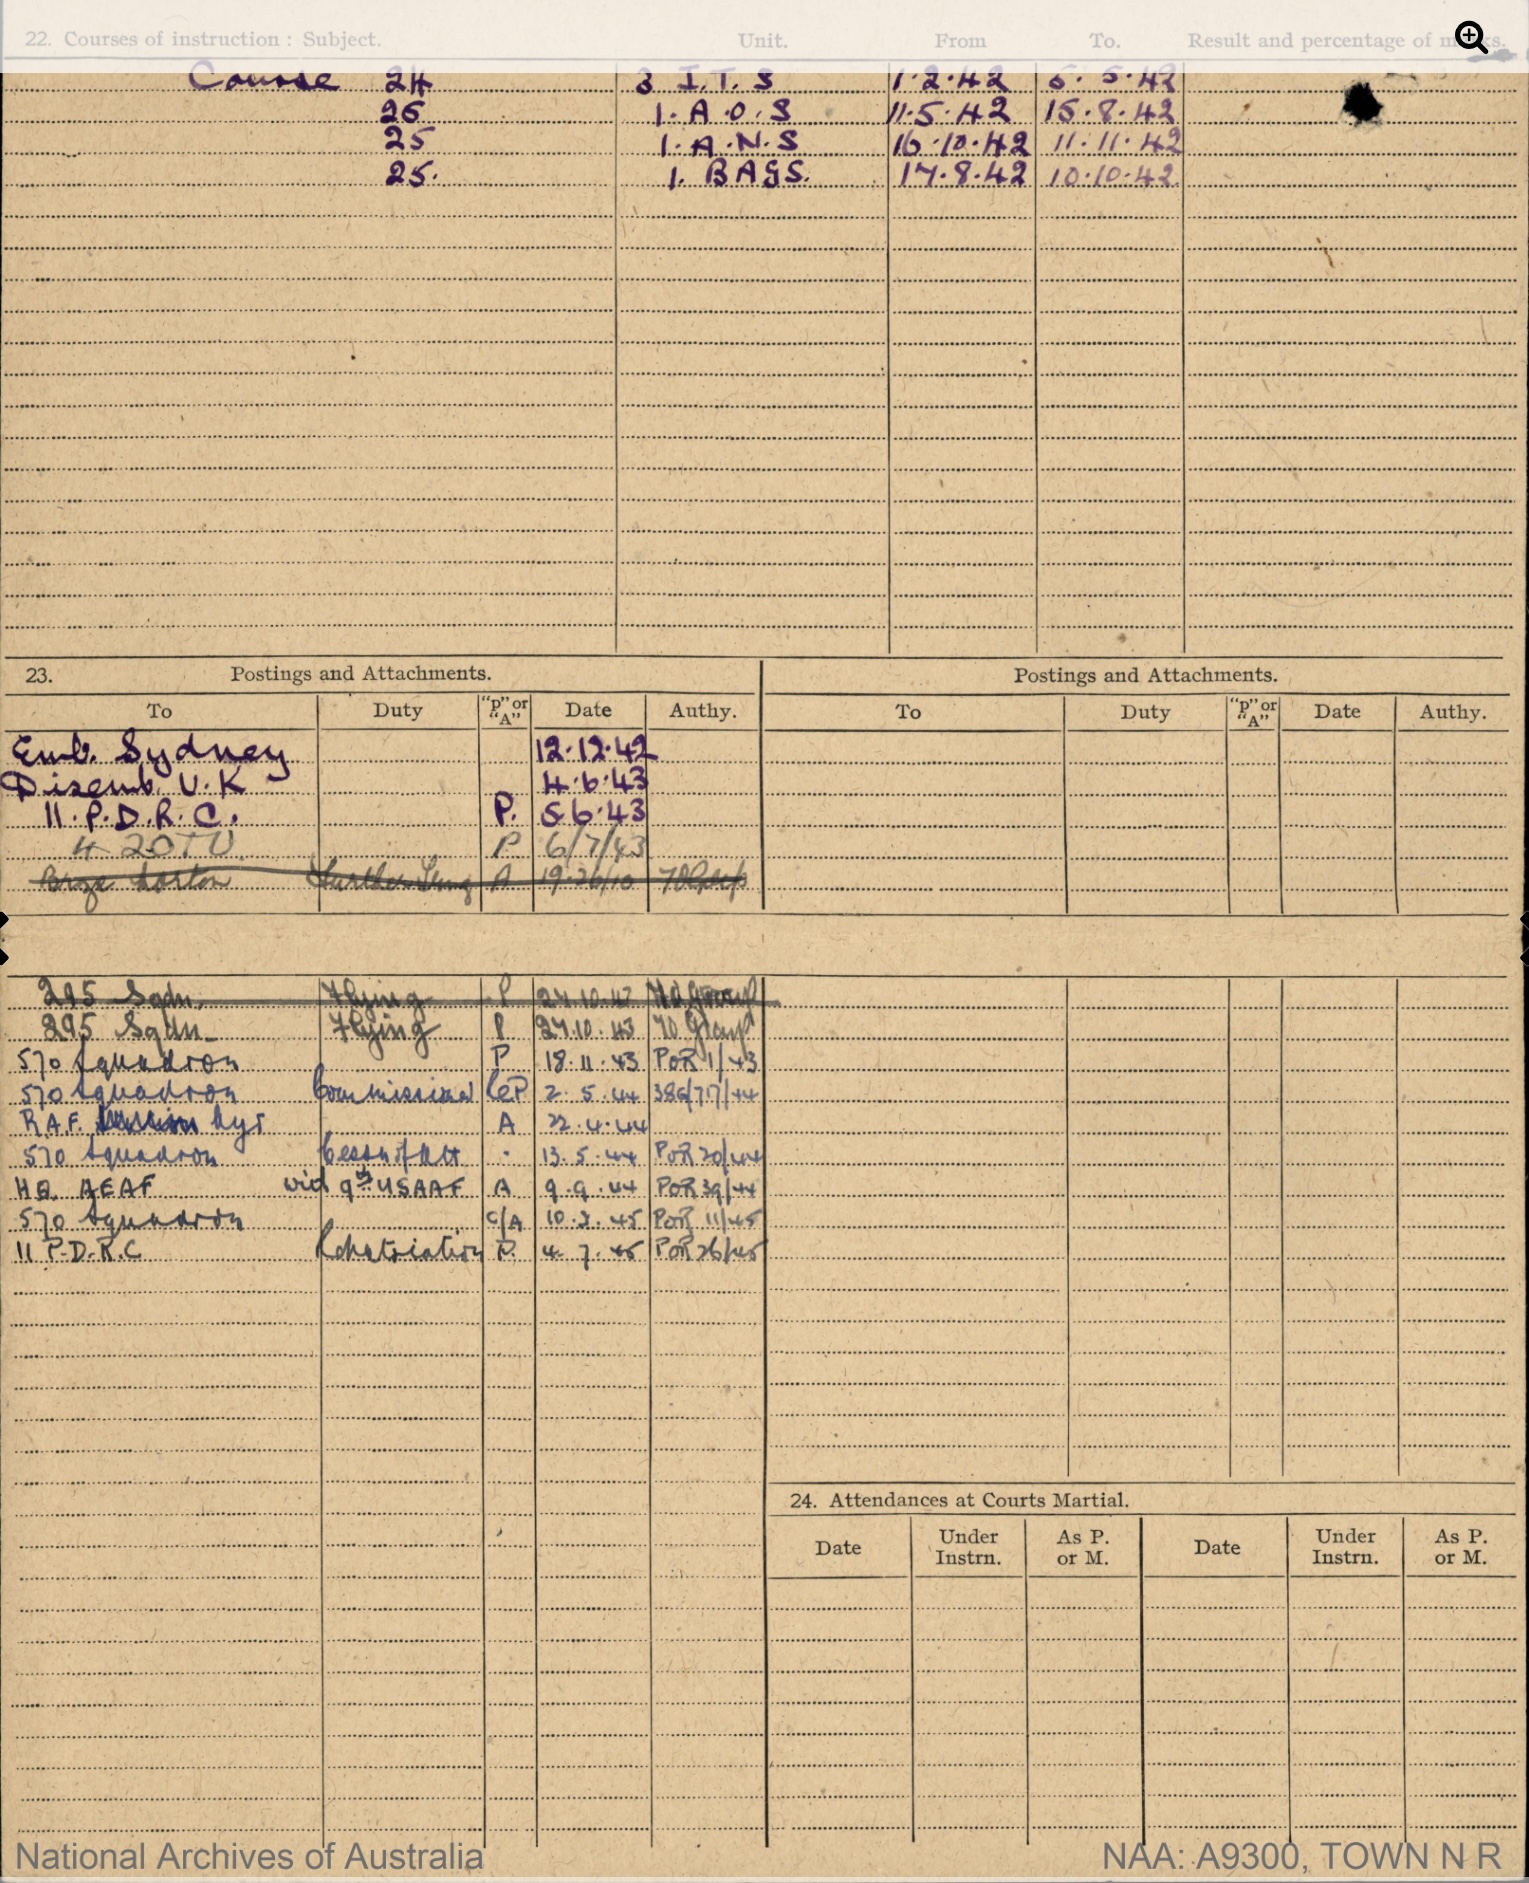 22. Courses of instruction : Subject. Unit. From To. Result and percentage of marks.
Course 24 3 I.T.S 1.2.42 5.5.42
26 1. A.O.S 11.5.42 15.8.42
25 1. A.N.S 16.10.42 11.11.42
25. 1. BAGS. 17.8.42 10.10.42
23. Postings and Attachments. Postings and Attachments.
To Duty "P" or "A" Date Authy. To Duty "P" or "A" Date Authy.
Emb. Sydney 12.12.42
Disemb. U.K 4.6.43
11.P.D.R.C. P. 5.6.43
42OTU P 6/7/43
Brize Norton A 19-26/10
295 Sqdn. Flying P 70 Group
295 Sqdn Flying P 27.10.43 70 Group
570 Squadron P 18.11.43 PoR 1/43
570 Squadron Commissioned 2.5.44 386/717/44
R.A.F. A 22.4.44
570 Squadron Cessn of Att 13.5.44 PoR 20/44
HQ. AEAF with 9th USAAF A 9.9.44 PoR 39/44
570 Squadron C/A 10.3.45 PoR 11/45
11 P.D.R.C Repatriation P. 4.7.45 PoR 26/45
24. Attendances at Courts Martial.
Date Under Instrn. As P. or M. Date Under Instrn. As P. or M.
National Archives of Australia NAA: A9300, TOWN N R